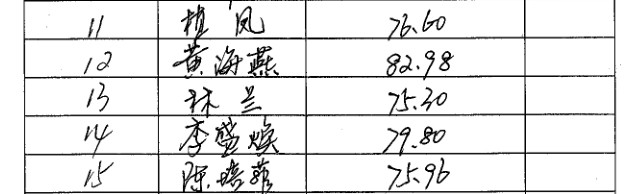 11 植凤 76.60
12 黄海燕 82.98
13 林兰 75.30
14 李盛焕 79.80
15 陈培菲 75.96